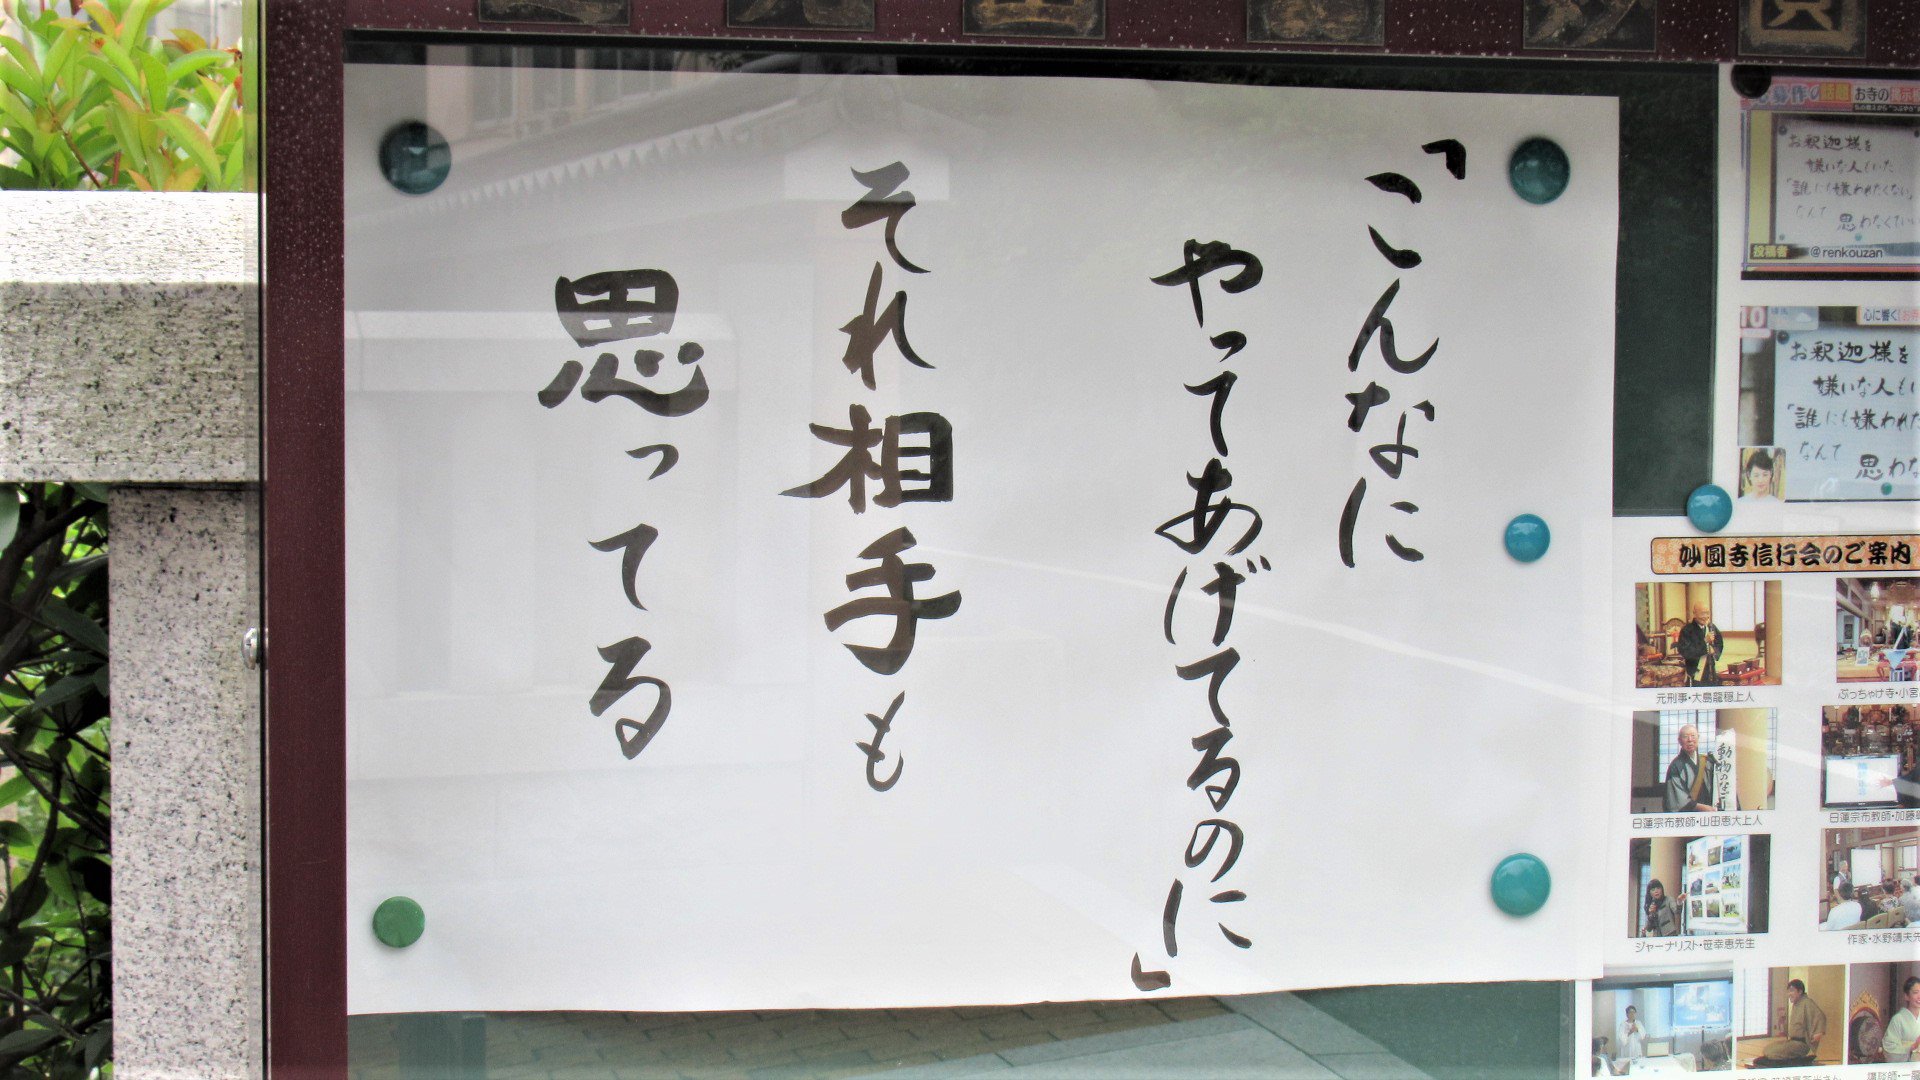 「こんなに
やってあげてるのに」
それ相手も
思ってる
お寺の
お釈迦様を
嫌いな人もいた
「誰にも嫌われたくない」
なんて
思わなくてい
投稿者 @renkouzan
10
心に響く
お釈迦様を
嫌いな人もい
「誰にも嫌われた
なんて
思わな
妙圓寺信行会のご案内
元刑事・大島龍穏上人
ぶっちゃけ寺・小宮
日蓮宗布教師・山田恵大上人
日蓮宗布教師・加藤
ジャーナリスト・笹幸恵先生
作家・水野靖夫先